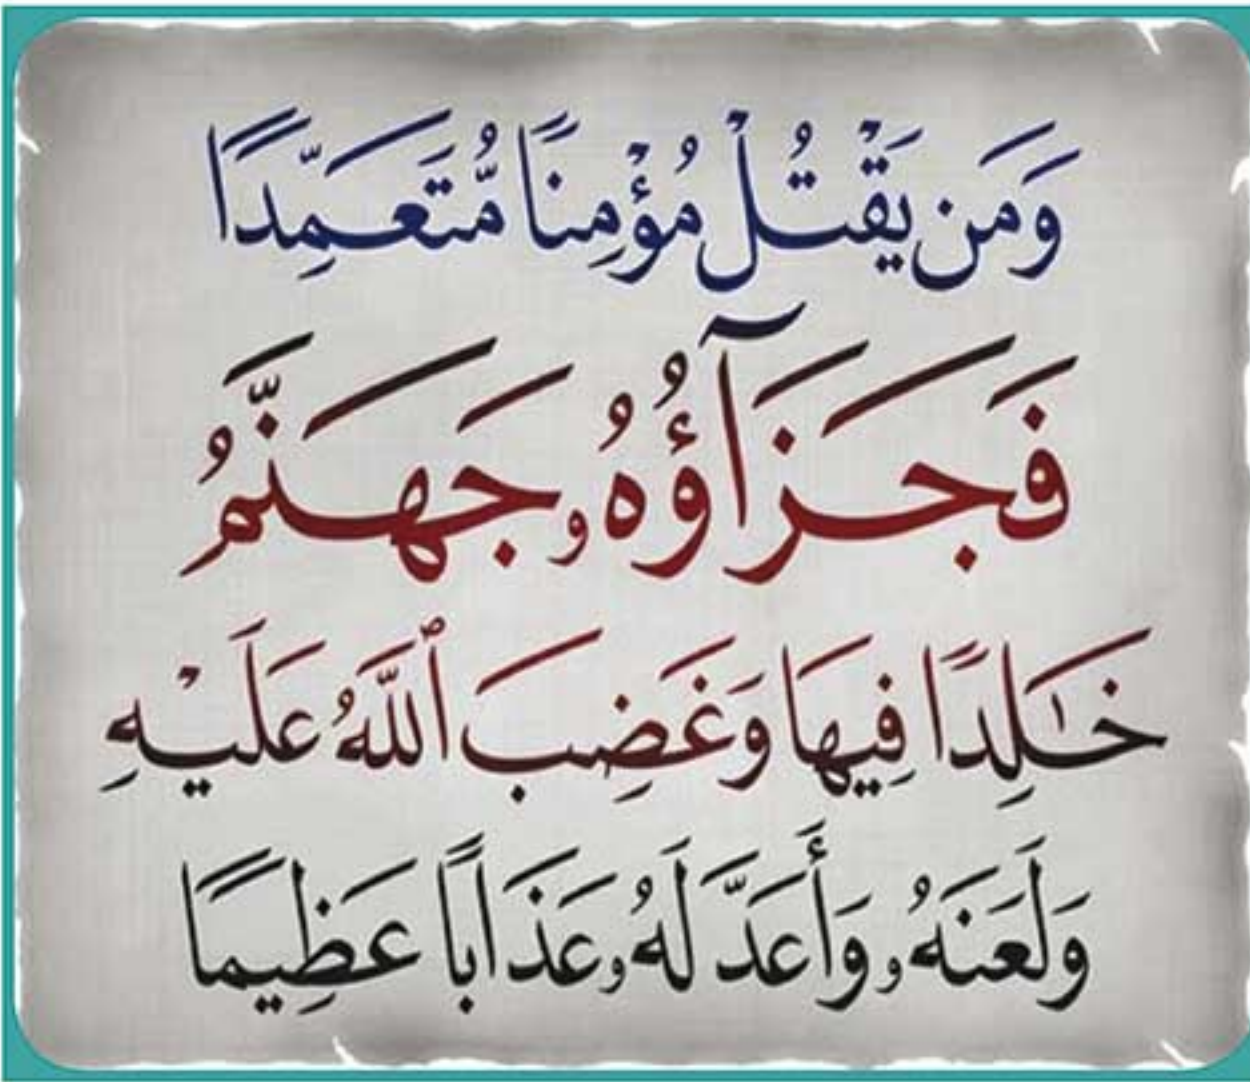 وَمَن يَقْتُلْ مُؤْمِنًا مُّتَعَمِّدًا
فَجَزَآؤُهُۥ جَهَنَّمُ
خَـٰلِدًا فِيهَا وَغَضِبَ ٱللَّهُ عَلَيْهِ
وَلَعَنَهُۥ وَأَعَدَّ لَهُۥ عَذَابًا عَظِيمًا